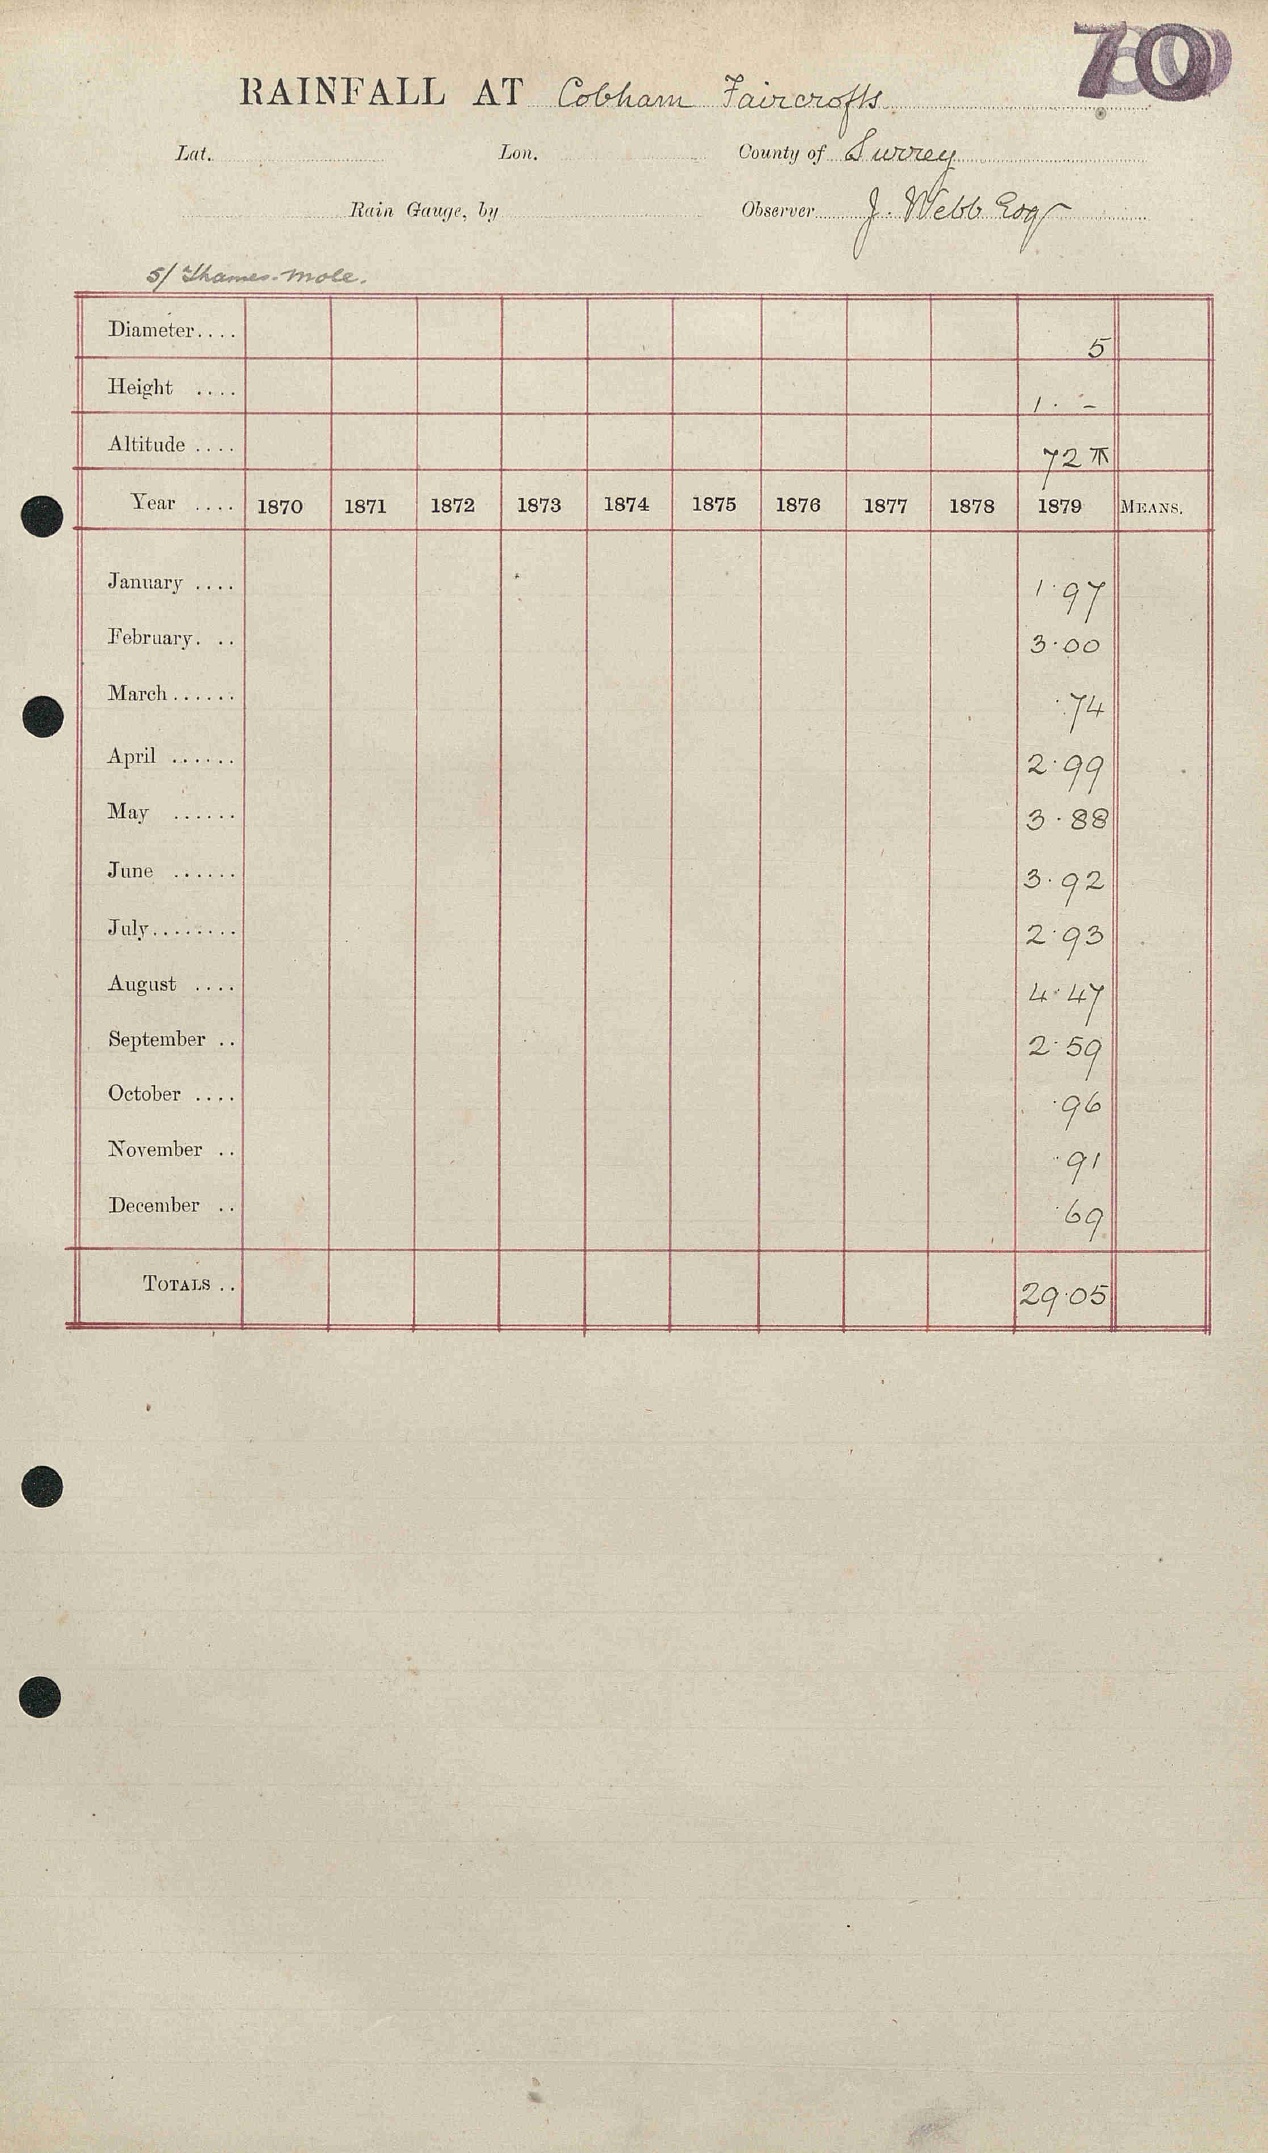 70
RAINFALL AT Cobham Faircrofts
Lat. Lon. County of Surrey
Rain Gauge, by Observer J. Webb Esq
5/ Thames-Mole.
Diameter.... 5
Height .... 1. -
Altitude .... 72
Year .... 1870 1871 1872 1873 1874 1875 1876 1877 1878 1879 MEANS.
January .... 1.97
February. .. 3.00
March...... .74
April ...... 2.99
May ...... 3.88
June ...... 3.92
July........ 2.93
August .... 4.47
September .. 2.59
October .... .96
November .. .91
December .. .69
TOTALS .. 29.05